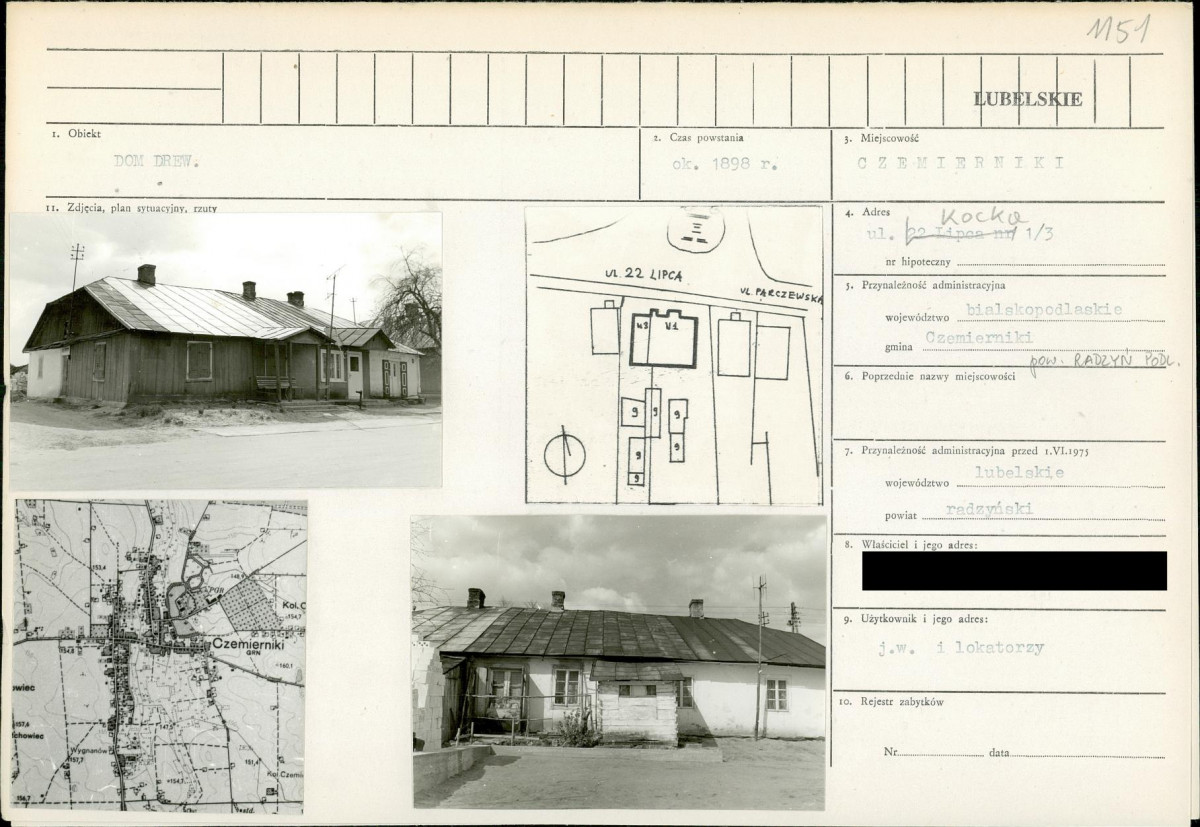 1151
LUBELSKIE
1. Obiekt
DOM DREW.
2. Czas powstania
ok. 1898 r.
3. Miejscowość
CZEMIERNIKI
11. Zdjęcia, plan sytuacyjny, rzuty
4. Adres
Kocka
ul. 22 Lipca nr 1/3
nr hipoteczny
5. Przynależność administracyjna
województwo bialskopodlaskie
gmina Czemierniki
pow. RADZYŃ PODL.
6. Poprzednie nazwy miejscowości
7. Przynależność administracyjna przed 1.VI.1975
województwo lubelskie
powiat radzyński
8. Właściciel i jego adres:
9. Użytkownik i jego adres:
j.w. i lokatorzy
10. Rejestr zabytków
Nr data
UL. 22 LIPCA
UL. PARCZEWSKA
g
g
g
g
g
g
153,4
148,9
Kol. C
154,7
Czemierniki
GRN
154,8
160.1
owiec
157,6
147,5
chowiec
Wygnanów
157,7
151,4
154,7
Kol. Czemie
156,7